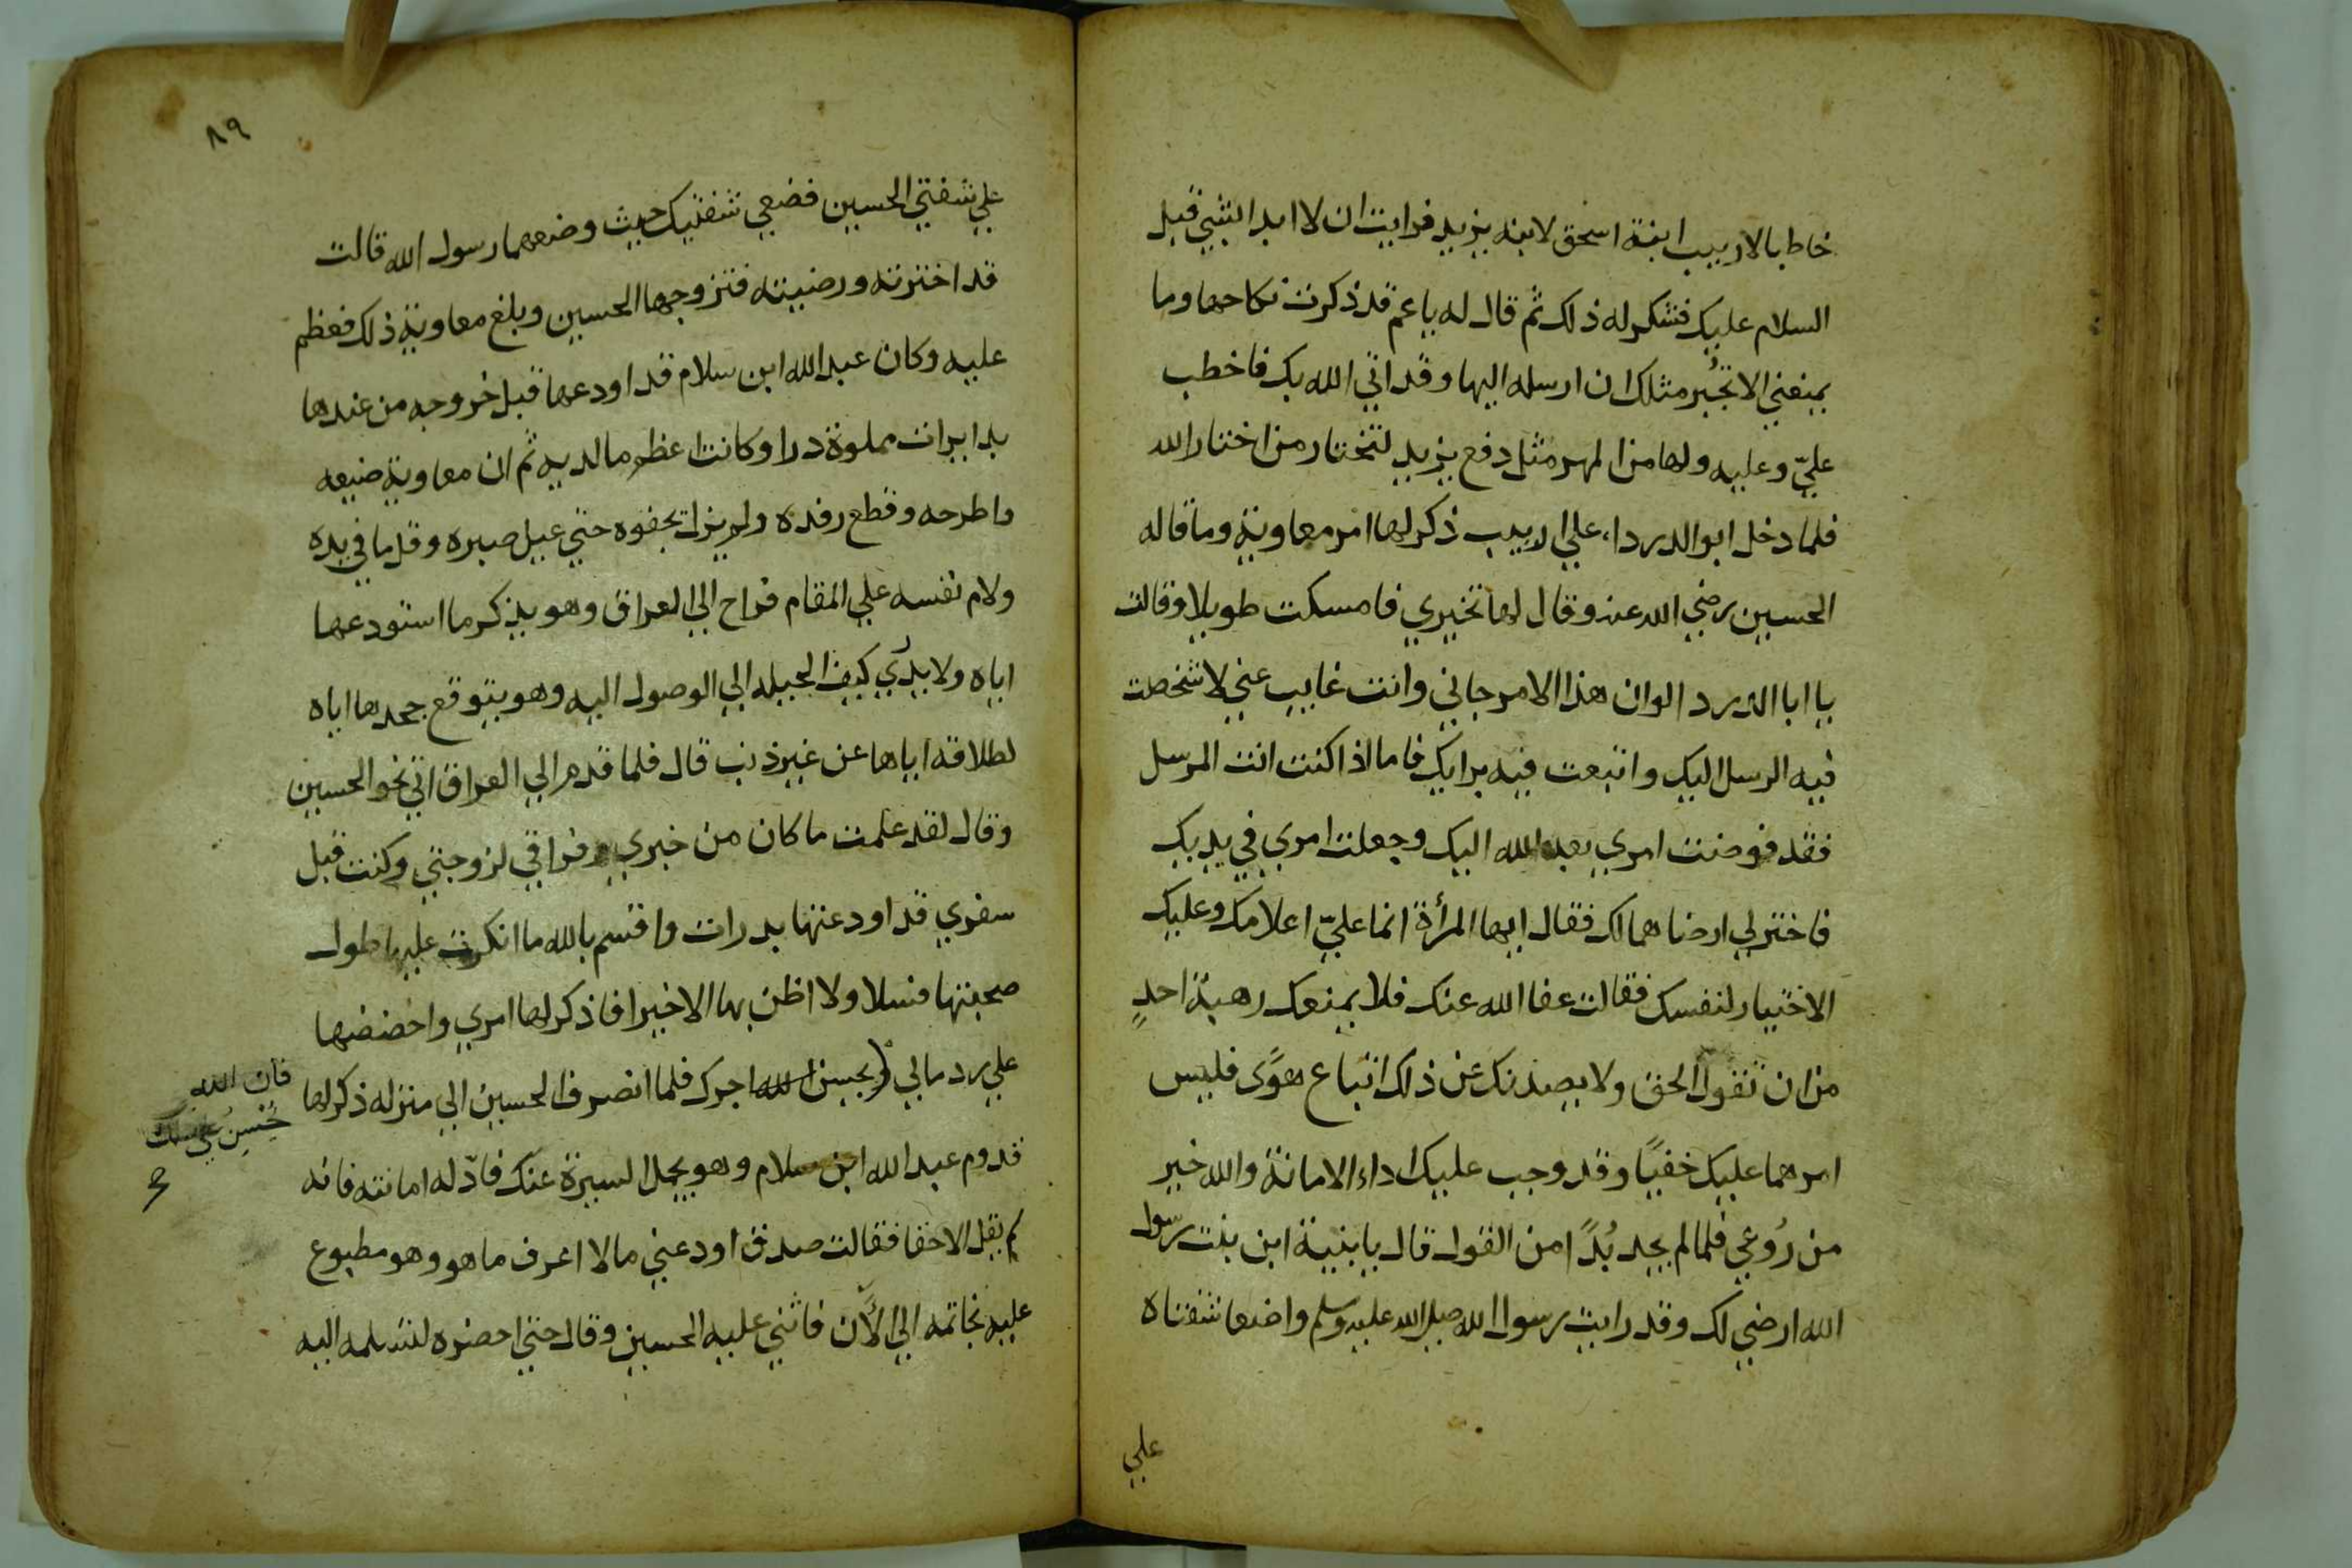 خاطبا لاريب ابنة اسحق لابنه يزيد فرايت ان لا ابدا لشي قبل
السلام عليك فشكر له ذلك ثم قال له ياعم قد ذكرت نكاحها وما
يمنعني الا تخير مثلك ان ارسله اليها وقد اتي الله بك فاخطب
عليّ وعليه ولها من المهر مثل دفع يزيد لتختار من اختار الله
فلما دخل ابو الدرداء علي اريب ذكر لها امر معاوية وما قاله
الحسين رضي الله عنه وقال لها تخيري فامسكت طويلا وقالت
يا ابا الدردا لو ان هذا الامر جاني وانت غايب عني لاشخصت
فيه الرسل اليك واتبعت فيه برايك فاما اذا كنت انت المرسل
فقد فوضت امري بعد الله اليك وجعلت امري في يديك
فاختر لي ارضاهما لك فقال ايها المرأة انما عليّ اعلامك وعليك
الاختيار لنفسك فقالت عفا الله عنك فلا يمنعك رهبة احدٍ
من ان تقول الحق ولا يصدنك عن ذلك اتباع هوًى فليس
امرهما عليك خفيًا وقد وجب عليك اداء الامانة والله خير
من رُوعي فلما لم يجد بُدًا من القول قال يا بنية ابن بنت رسول
الله ارضي لك وقد رايت رسول الله صلي الله عليه وسلم واضعا شفتاه
علي
٨٩
علي شفتي الحسين فضعي شفتيك حيث وضعهما رسول الله قالت
قد اخترته ورضيته فتزوجها الحسين وبلغ معاوية ذلك فعظم
عليه وكان عبد الله ابن سلام قد اودعها قبل خروجه من عندها
بدايرات مملوة درا وكانت اعظم ما لديه ثم ان معاوية ضيعه
واطرحه وقطع رفده ولم يزل يجفوه حتي عيل صبره وقل ما في يده
ولام نفسه علي المقام فراح الي العراق وهو يذكر ما استودعها
اياه ولا يدري كيف الحيله الي الوصول اليه وهو يتوقع جحدها اياه
لطلاقه اياها عن غير ذنب قال فلما قدم الي العراق اتي نحو الحسين
وقال لقد علمت ما كان من خبري وفراقي لزوجتي وكنت قبل
سفري قد اودعتها بدرات واقسم بالله ما انكرت عليها طول
صحبتها فسلا ولا اظن بها الا خيرا فاذكر لها امري واحضضها
علي رد مالي يحسن الله اجرك فلما انصرف الحسين الي منزله ذكر لها
فان الله
قدوم عبد الله ابن سلام وهو يجمل السيرة عنك فادّ له امانته فانه
لم يقل الا حقا فقالت صدق اودعني ما لا اعرف ما هو وهو مطبوع
عليه بخاتمه الي الأن فاثني عليه الحسين وقال حتي احضره لتسلمه اليه